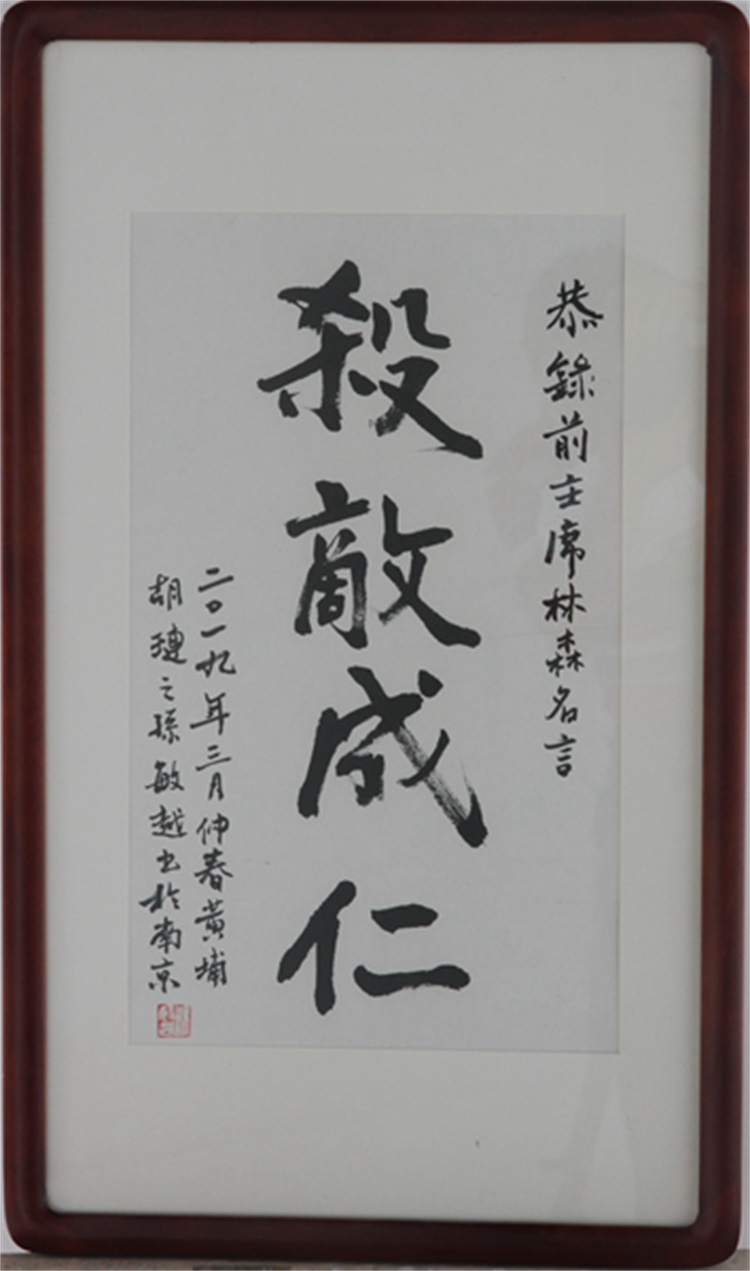 恭錄前主席林森名言
殺敵成仁
二〇一九年三月仲春黃埔
胡璉之孫敏越書於南京